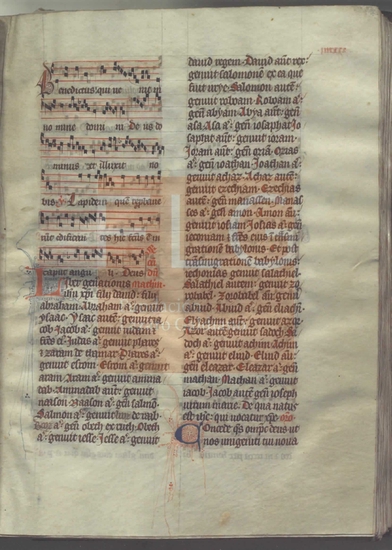 lxxxiii
Benedictus qui ve ni
nomine domi ni Deus do
minus et illuxit no
bis V Lapidem quem reproba
factus est in
caput angu li
Liber generationis
ihu xpi filii dauid filii
abraham Abraham a genuit
ysaac Ysaac aute genuit ia
cob Iacob a genuit iudam
fres ei Iudas a genuit phares
et zaram de thamar Phares a
genuit esrom Esrom a genuit
aram Aram a genuit amina
dab Aminadab aute genuit
naason Naason a gen salmon
Salmon a genuit booz de raab
Booz a gen obeth ex ruth Obeth
a genuit iesse Iesse a genuit
dauid regem Dauid aute rex
genuit salomone ex ea que
fuit urye Salomon aute
genuit roboam Roboam a
gen abyam Abya aute gen
asa Asa a gen iosaphat Io
saphat aute genuit ioram
Ioram aute gen oziam Ozias
a gen ioathan Ioathan a
genuit achaz Achaz aute
genuit ezechiam Ezechias
aute gen manassen Manas
ses a gen amon Amon aute
genuit iosiam Iosias a gen
ieconiam et fres eius in transmi
gratione babylonis Et post
transmigratione babylonis
iechonias genuit salathiel
Salathiel autem genuit zo
robabel Zorobabel aute genuit
abiud Abiud a gen eliachim
Elyachim aute genuit azor
Azor aute genuit sadoch Sa
doch a genuit achim Achim
a genuit eliud Eliud aute
gen eleazar Eleazar a gen
mathan Mathan a genuit
iacob Iacob aute gen ioseph
uirum marie De qua natus
est ihc qui uocatur xpc
Concede qs omps deus ut
nos unigeniti tui noua